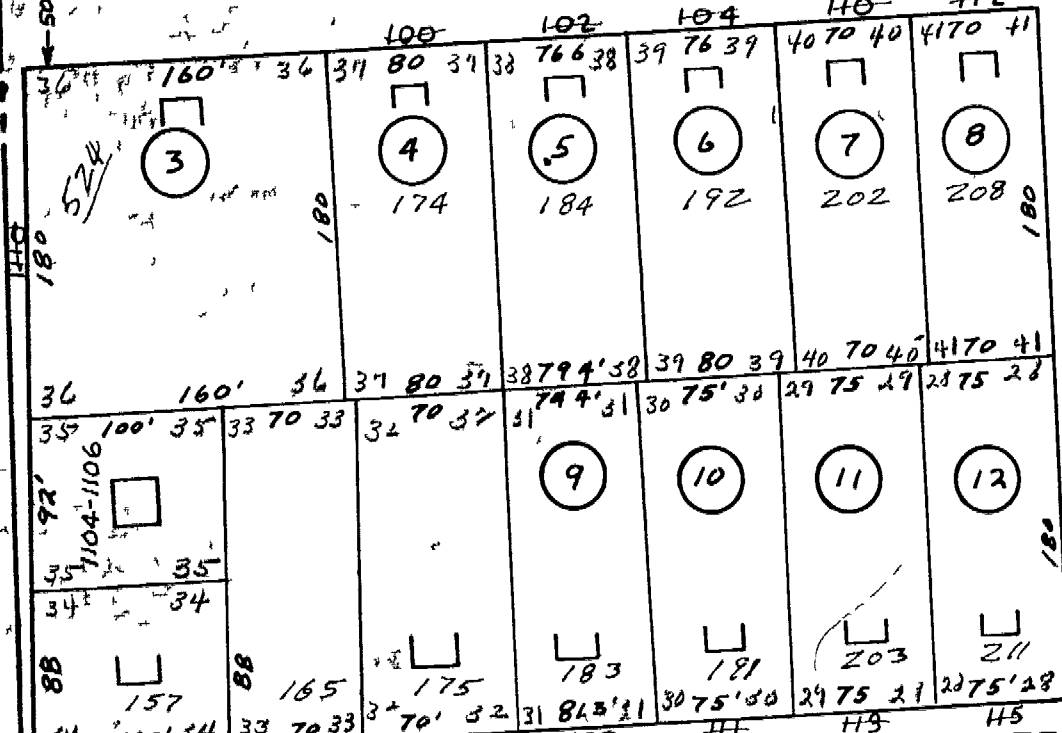 50
100 102 104 110 112
36 160' 36 37 80 37 38 76 6 38 39 76 39 40 70 40 41 70 41
3 4 5 6 7 8
524 174 184 192 202 208
180 180 180
110
36 160' 36 37 80 37 38 79 4' 38 39 80 39 40 70 40 41 70 41
35 100' 35 33 70 33 32 70 32 31 79 4' 31 30 75' 30 29 75 29 28 75 28
92' 1104-1106 9 10 11 12
180
35 35
34 34
88 88
157 165 175 183 191 203 211
33 70 33 32 70' 32 31 31 30 75' 30 29 75 29 28 75' 28
111 113 115